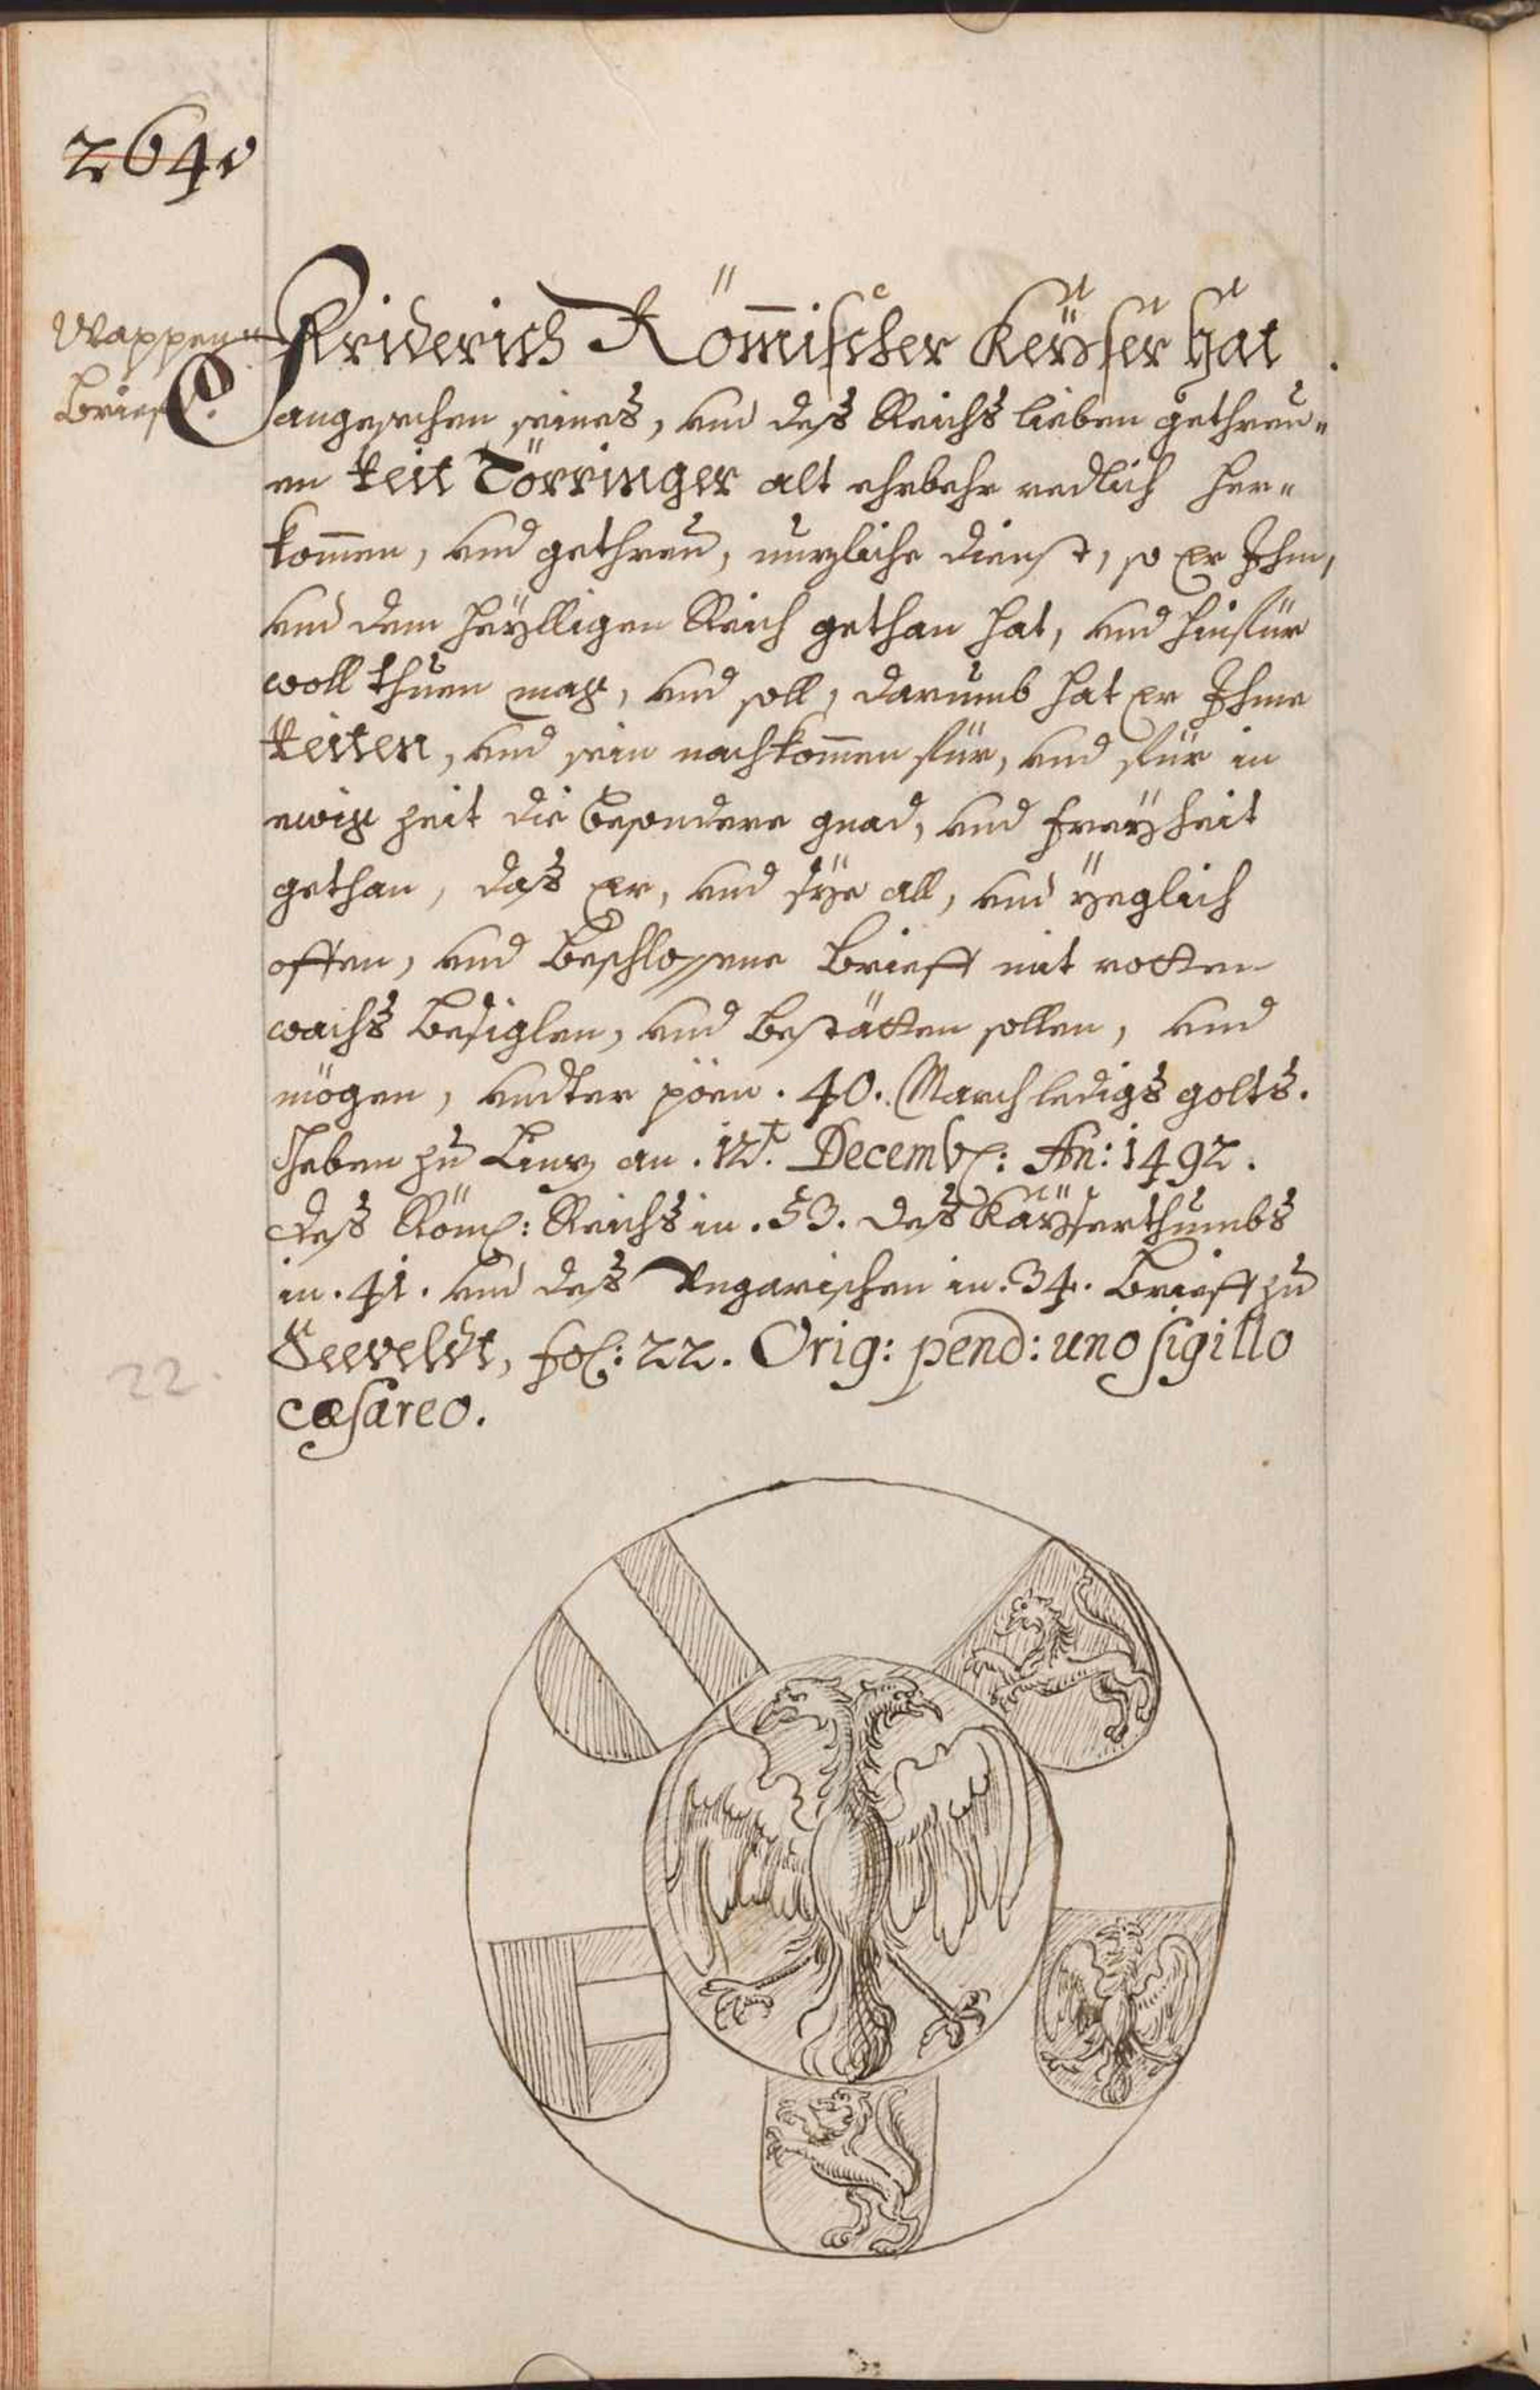 2640
Wappen=
Brieff.
Friderich Römischer Keyser hat
angesechen seines, und deß Reichs lieben gethreu=
en Veit Törringer alt ehrbehr redlich her=
kommen, und gethreu, nuzliche dienst, so Er Ihm,
und dem Heylligen Reich gethan hat, und hinfür
woll thuen mag, und soll, darumb hat Er Ihme
Veiten, und sein nachkommen für, und für in
ewig zeit die besondere gnad, und freyheit
gethan, das Er, und sye all, und yeglich
offen, und beschlossene brieff mit rotten
wachs besiglen, und bestätten sollen, und
mögen, undter pöen . 40. March ledigs golts.
Geben zu Linz an . 12t. Decemb: An: 1492.
deß Röm: Reichs in . 53. des Kayserthumbs
in . 41. und des Ungarischen in . 34. brieff zu
Seeveldt, fol: 22. Orig: pend: uno sigillo
cæsareo.
22.